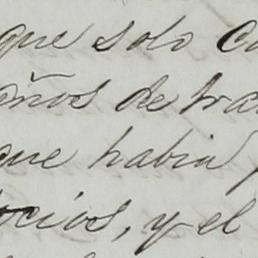 que solo
años de
que habia
ocios, y el